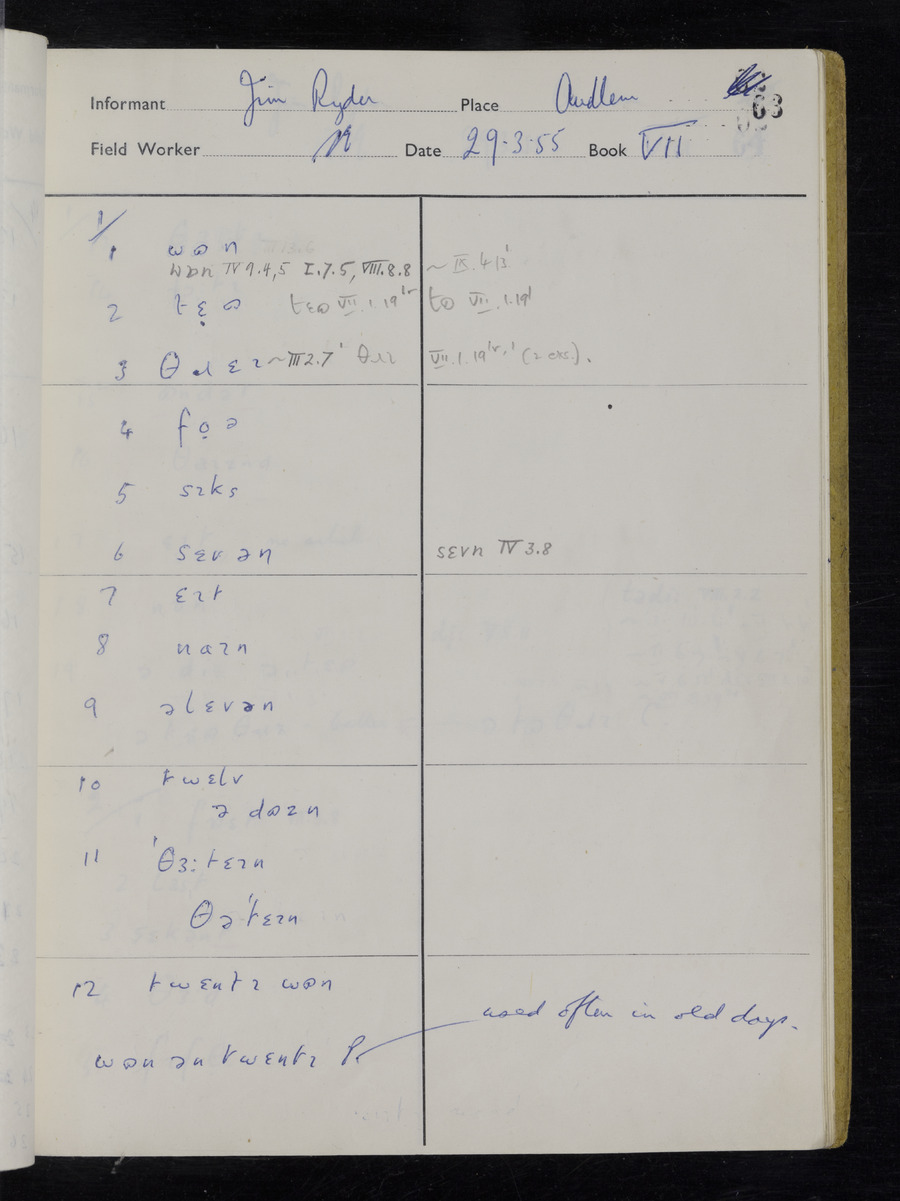 Informant Jim Ryder Place Audlem 63
Field Worker Date 29·3·55 Book VII
1/
1 wɷn
wɒn IV 9.4,5 I.7.5, VIII.8.8 ~ IX.4 13'
2 tɛ̣ɷ tɛɷ VII.1.19 tɷ VII.1.19
3 ~ III 2.7' VII.1.19 (2 exs).
4 fọə
5 sɪks
6 sɛvən sɛvn IV 3.8
7 ɛɪt
8 naɪn
9 əlɛvən
10 twɛlv
ə dɷzn
11 'θɜ:tɛɪn
θə'tɛɪn
12 twɛntɪ wɷn
used often in old days.
wɷn ən twɛntɪ P.